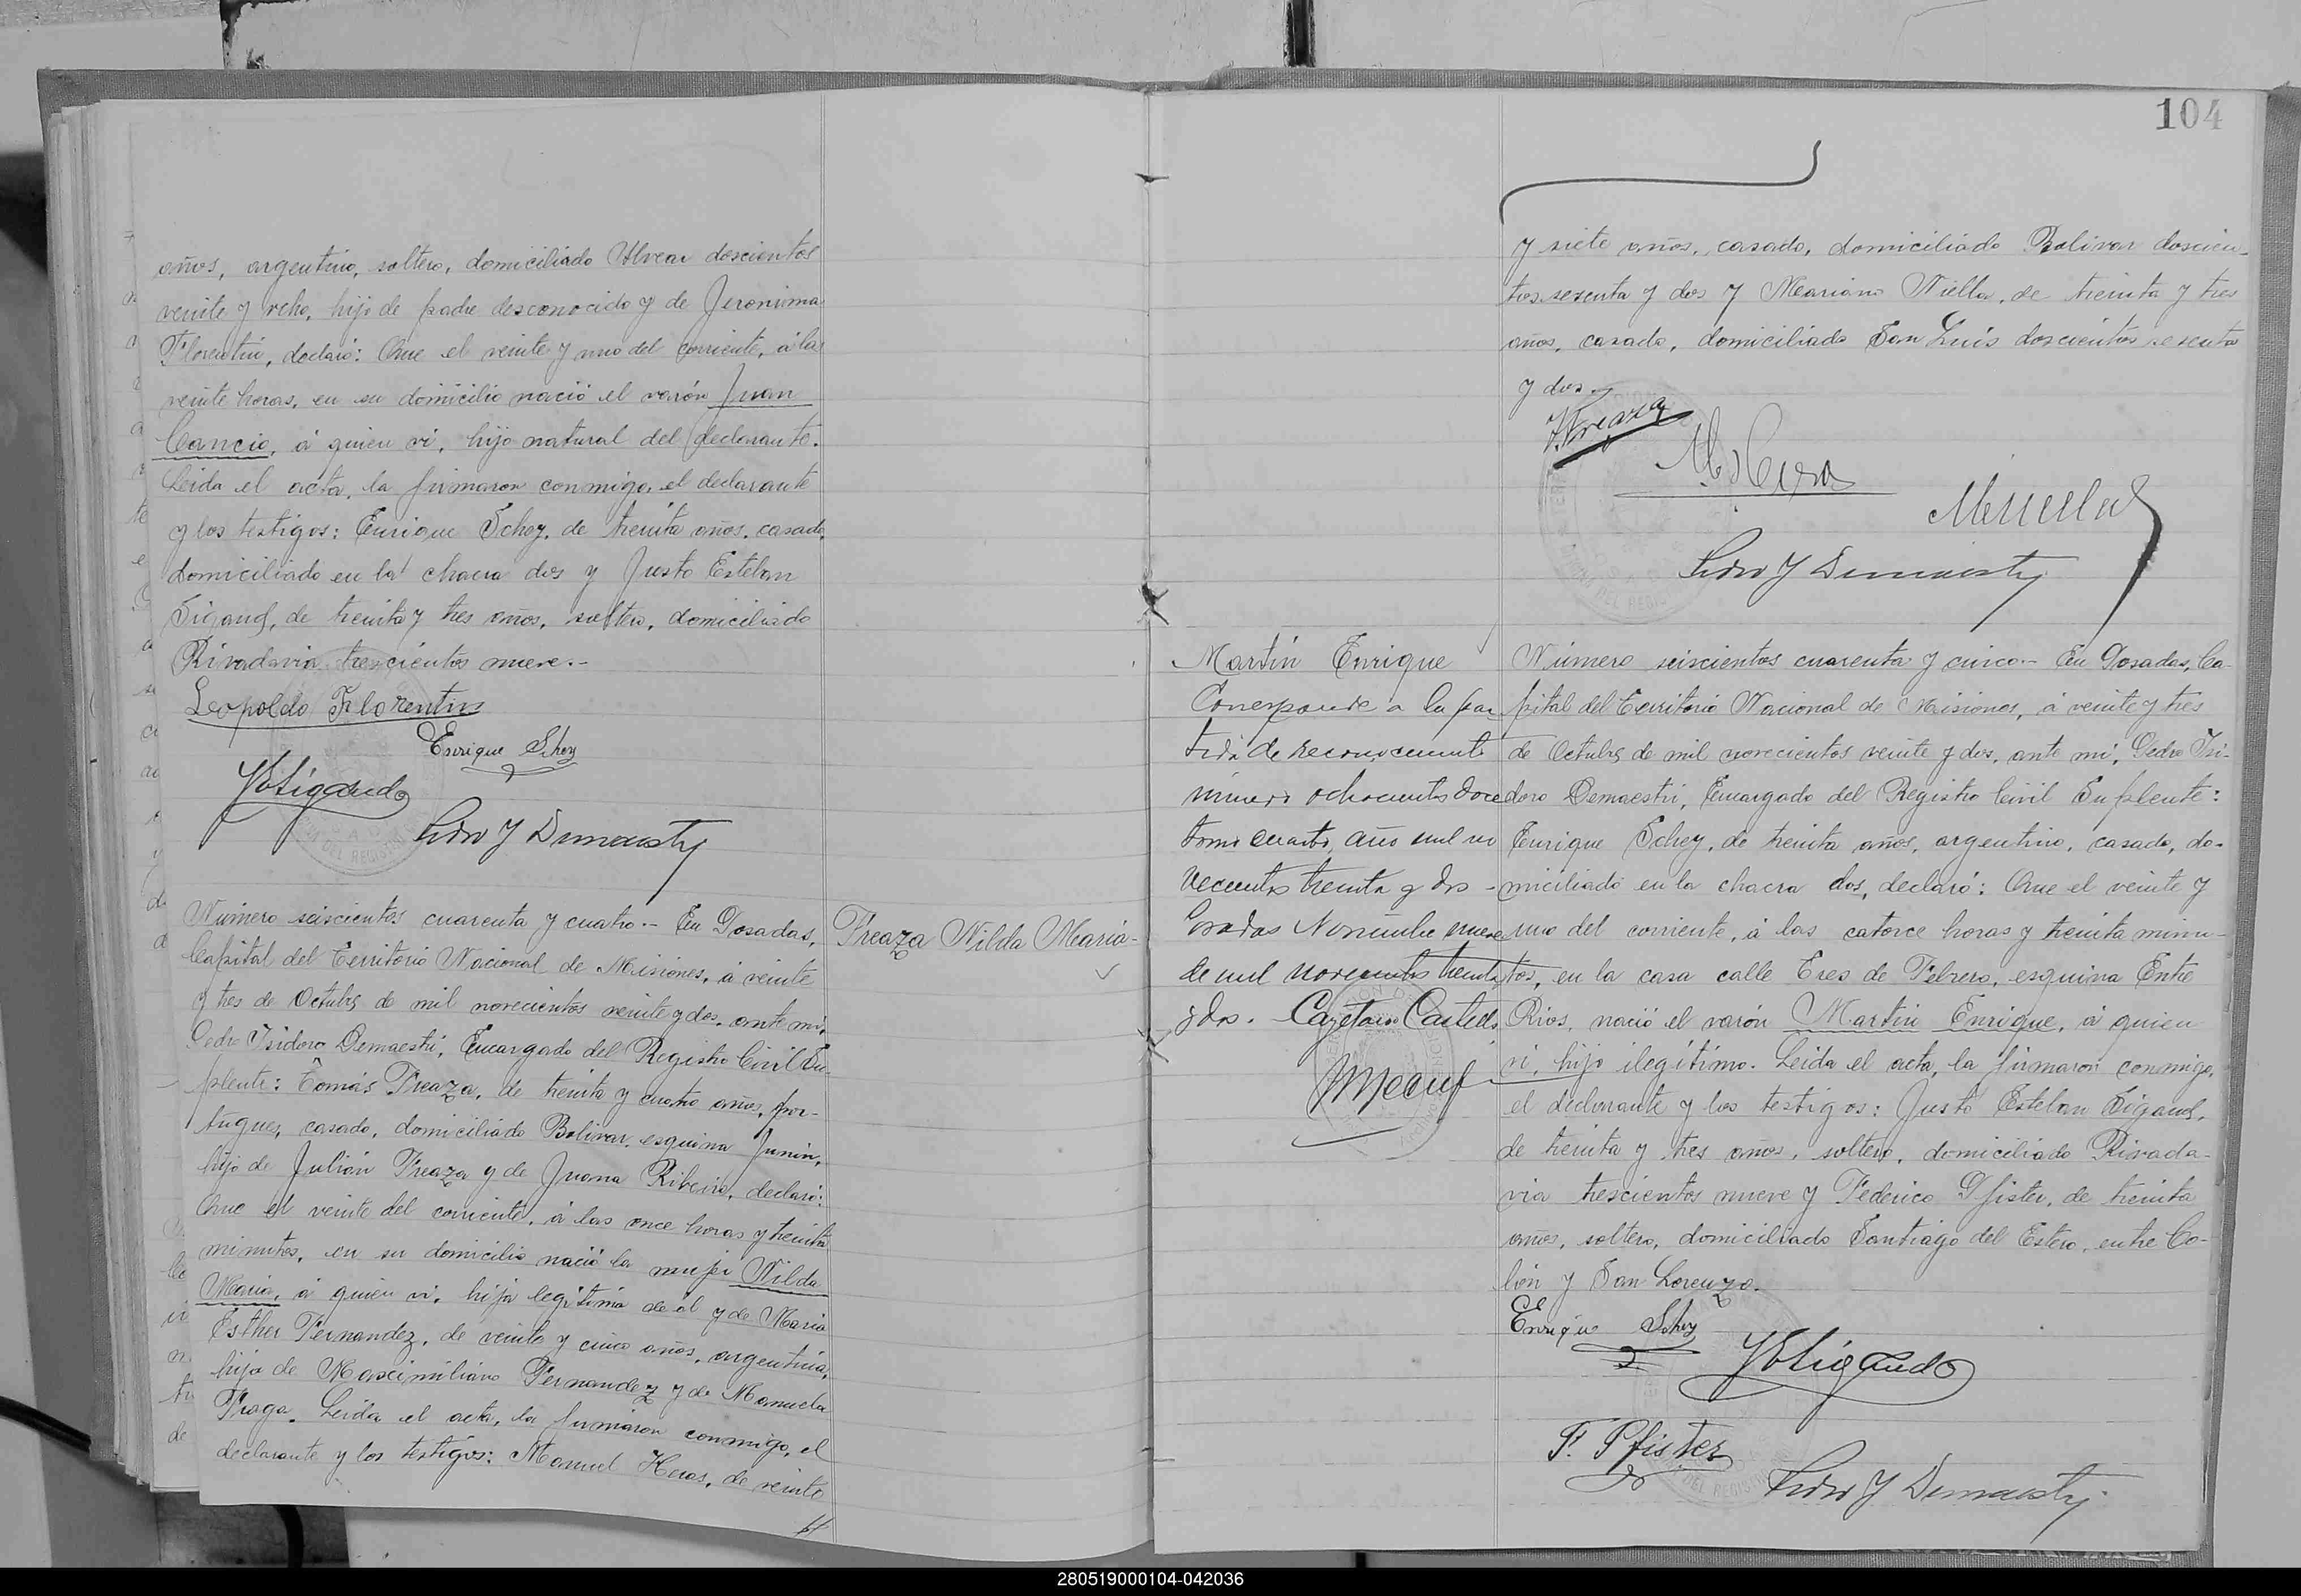 años, argentino, soltero, domiciliado Alvear doscientos
veinte y ocho, hijo de padre desconocido y de Jeronima
Florentin, declaró: Que el veinte y uno del corriente, á las
veinte horas, en su domicilio nació el varón Juan
Cancio, á quien vi, hijo natural del declarante.
Leida el acta, la firmaron conmigo, el declarante
y los testigos: Enrique Schey, de treinta años, casado,
domiciliado en la chacra dos y Justo Esteban
Sigaud, de treinta y tres años, soltero, domiciliado
Rivadavia trescientos nueve.-
Leopoldo Florentin
Enrique Schey
JESigaud
Pedro I Demaestri
Número seiscientos cuarenta y cuatro.- En Posadas,
Capital del Territorio Nacional de Misiones, á veinte
y tres de Octubre de mil novecientos veinte y dos, ante mi,
Pedro Isidoro Demaestri, Encargado del Registro Civil Su-
plente: Tomás Freaza, de treinta y cuatro años, por-
tugues, casado, domiciliado Bolivar, esquina Junin,
hijo de Julián Freaza y de Juana Ribeiro, declaró:
Que el veinte del corriente, á las once horas y treinta
minutos, en su domicilio nació la mujer Nilda
Maria, á quien vi, hija legitima de él y de Maria
Esther Fernandez, de veinte y cinco años, argentina,
hija de Mascimiliano Fernandez y de Manuela
Fraga. Leida el acta, la firmaron conmigo, el
declarante y los testigos: Manuel Heras, de veinte
Freaza Nilda Maria-
104
y siete años, casado, domiciliado Bolivar doscien-
tos sesenta y dos y Mariano Niella, de treinta y tres
años, casado, domiciliado San Luis doscientos sesenta
y dos.-
TFreaza
MHeras
MNiella
Pedro I Demaestri
Martín Enrique
Corresponde a la par
tida de reconocimiento
número ochocientos doce
tomo cuarto, año mil no
vecientos treinta y dos -
Posadas Noviembre nueve
de mil novecientos treinta
y dos. Cayetano Castells
Número seiscientos cuarenta y cinco.- En Posadas, Ca-
pital del Territorio Nacional de Misiones, á veinte y tres
de Octubre de mil novecientos veinte y dos, ante mi, Pedro Isi-
doro Demaestri, Encargado del Registro Civil Suplente:
Enrique Schey, de treinta años, argentino, casado, do-
miciliado en la chacra dos, declaró: Que el veinte y
uno del corriente, á las catorce horas y treinta minu-
tos, en la casa calle Tres de Febrero, esquina Entre
Rios, nació el varón Martin Enrique, á quien
vi, hijo ilegítimo. Leida el acta, la firmaron conmigo,
el declarante y los testigos: Justo Esteban Sigaud,
de treinta y tres años, soltero, domiciliado Rivada-
via trescientos nueve y Federico Pfister, de treinta
años, soltero, domiciliado Santiago del Estero, entre Co-
lón y San Lorenzo.
Enrique Schey
JESigaud
F. Pfister
Pedro I Demaestri
280519000104-042036